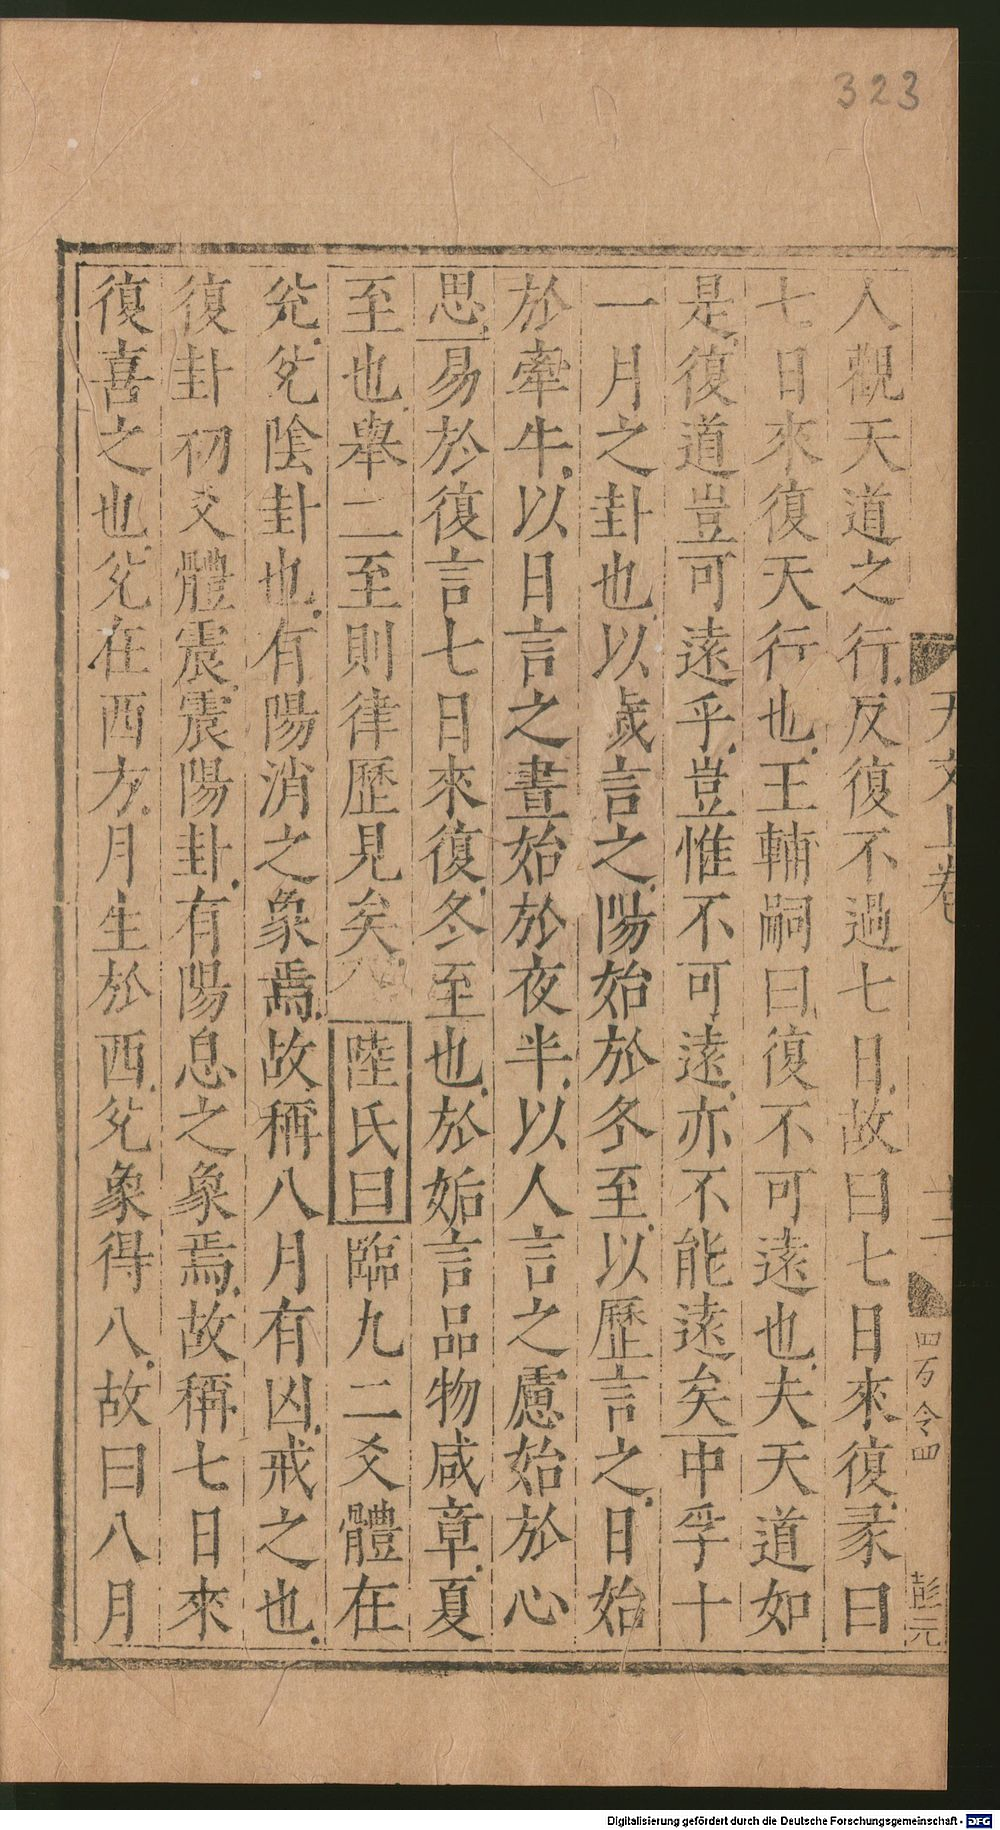 323
人觀天道之行反復不過七日故曰七日來復彖曰
七日來復天行也王輔嗣曰復不可遠也夫天道如
是復道豈可遠乎豈惟不可遠亦不能遠矣中孚十
一月之卦也以歲言之陽始於冬至以歷言之日始
於牽牛以日言之晝始於夜半以人言之慮始於心
思易於復言七日來復冬至也於姤言品物咸章夏
至也舉二至則律歷見矣陸氏曰臨九二爻體在
兊兊陰卦也有陽消之象焉故稱八月有凶戒之也
復卦初爻體震震陽卦有陽息之象焉故稱七日來
復喜之也兊在西方月生於西兊象得八故曰八月
天文上卷
四万令四
彭元
Digitalisierung gefördert durch die Deutsche Forschungsgemeinschaft - DFG